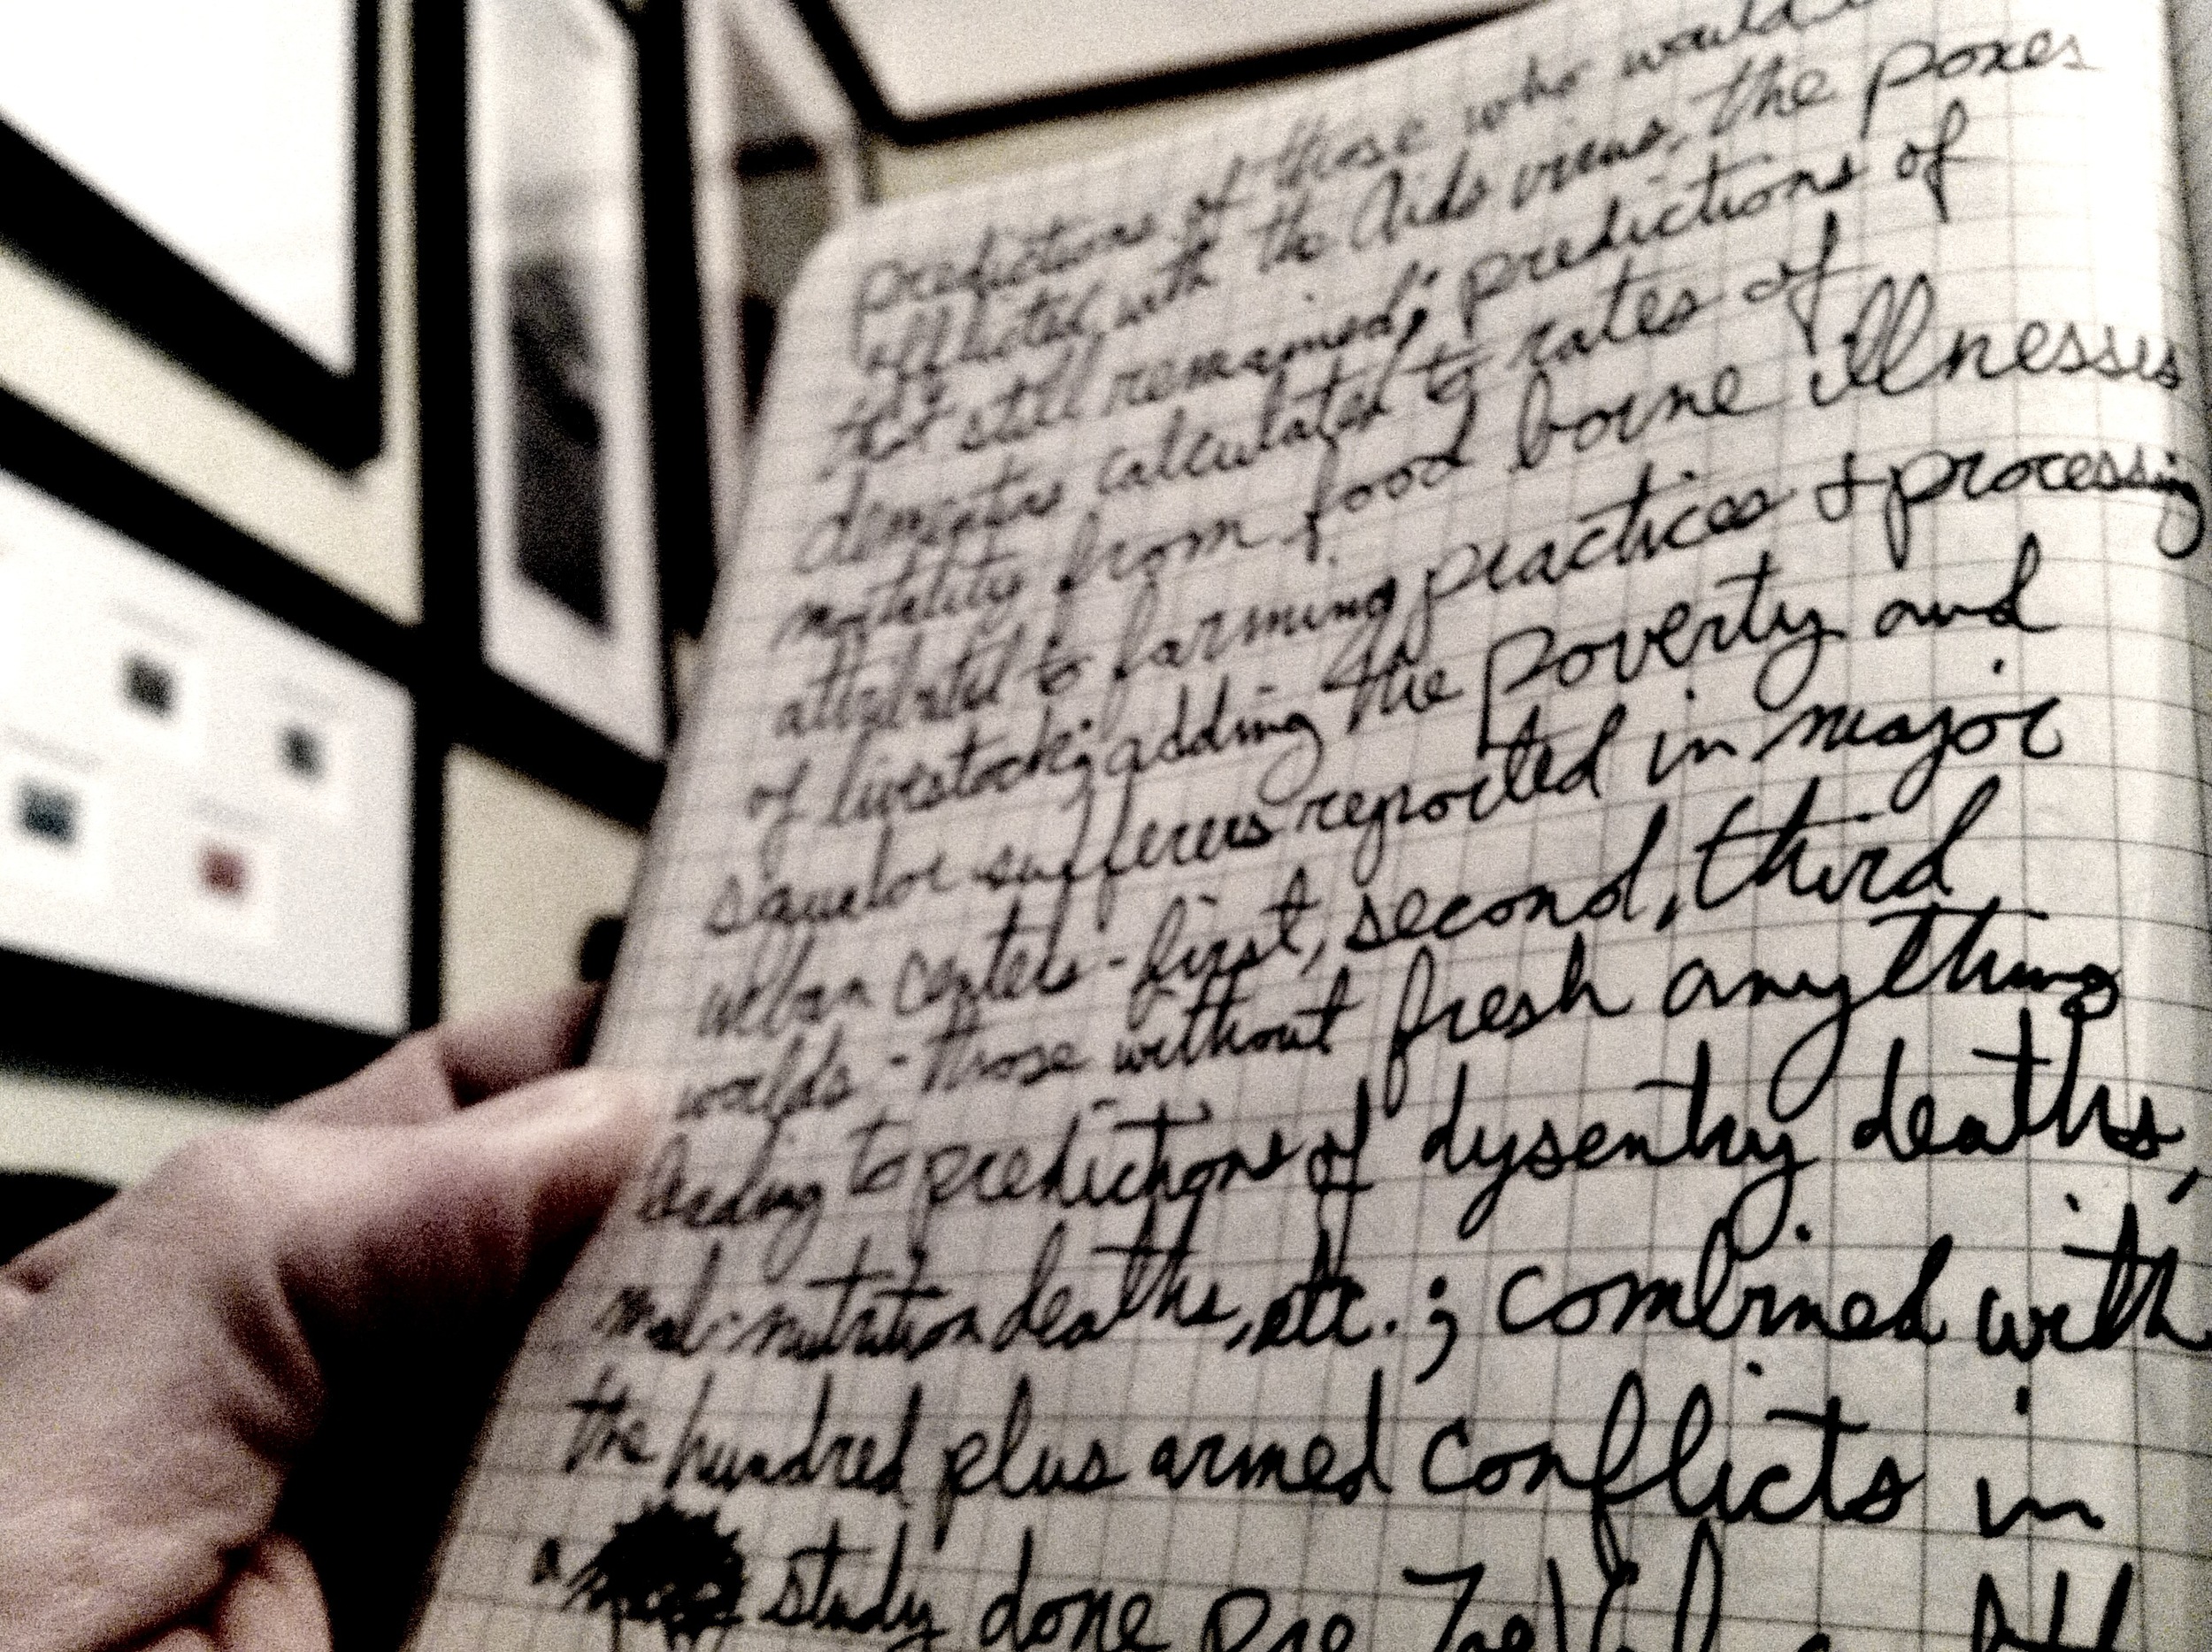 predictions of those who would
afflicted with the Aids virus, the poxes
that still remained; predictions of
dementia calculated to rates of
mortality from food borne illnesses
attributed to farming practices & processing
of livestock; adding the poverty and
squalor sufferers reported in major
urban centers - first, second, third
worlds - those without fresh anything
leading to predictions of dysentry deaths,
mal-nutrition deaths, etc.; combined with
the hundred plus armed conflicts in
a study done